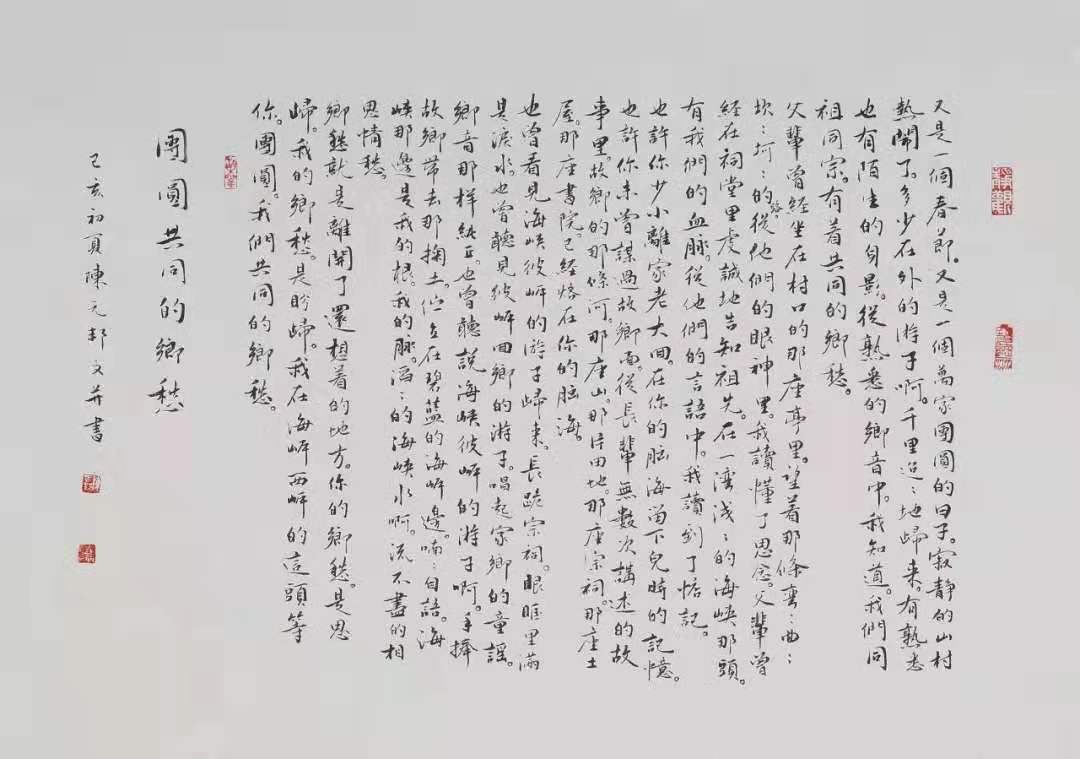 又是一個春節。又是一個萬家團圓的日子。寂靜的山村
熱鬧了。多少在外的游子啊。千里迢〻地歸来。有熟悉
也有陌生的身影。從熟悉的鄉音中。我知道。我們同
祖同宗。有着共同的鄉愁。
父輩曾經坐在村口的那座亭里。望着那條弯〻曲〻
坎〻坷〻的路。從他們的眼神里。我讀懂了思念。父輩曾
經在祠堂里虔誠地告知祖先。在一湾浅〻的海峡那頭。
有我們的血脉。從他們的言語中。我讀到了惦記。
也許你少小離家老大回。在你的脑海留下兒時的記憶。
也許你未曾謀過故鄉面。從長輩無數次講述的故
事里。故鄉的那條河。那座山。那片田地。那座宗祠。那座土
屋。那座書院。已經烙在你的脑海。
也曾看見海峡彼岸的游子歸来。長跪宗祠。眼眶里满
是淚水。也曾聽見彼岸回鄉的游子。唱起家鄉的童謡。
鄉音那样純正。也曾聽説海峡彼岸的游子啊。手捧
故鄉带去那掬土。伫立在碧藍的海岸邊。喃〻自語。海
峡那邊是我的根。我的脉。滔〻的海峡水啊。流不盡的相
思情愁。
鄉愁就是離開了還想着的地方。你的鄉愁。是思
歸。我的鄉愁。是盼歸。我在海岸西岸的這頭等
你。團圓。我們共同的鄉愁。
團圓共同的鄉愁
己亥初夏陳元邦文并書